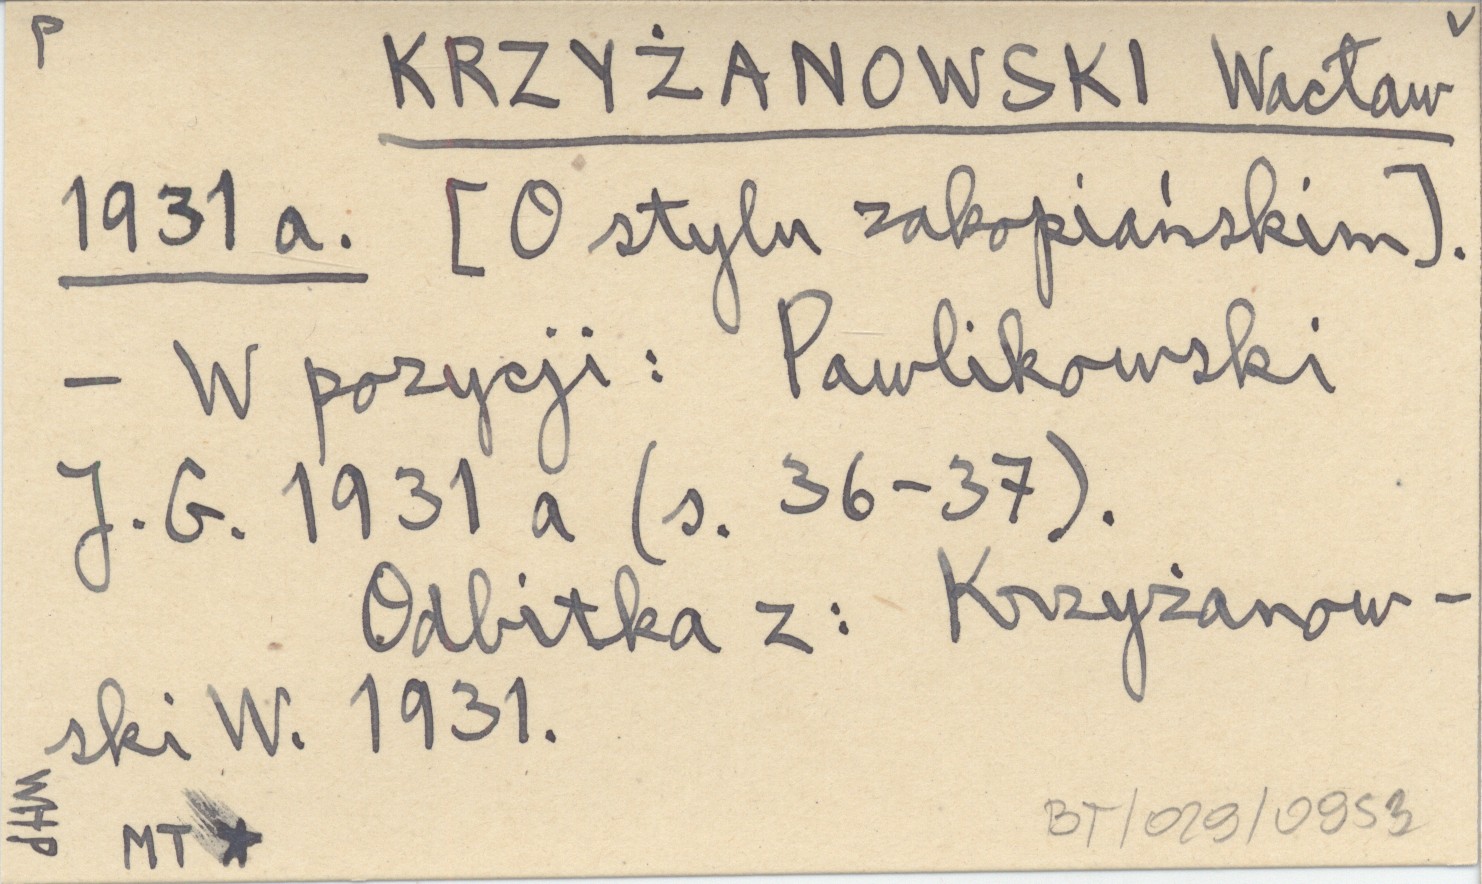 P
v
KRZYŻANOWSKI Wacław
1931 a. [O stylu zakopiańskim].
– W pozycji: Pawlikowski
J. G. 1931 a (s. 36-37).
Odbitka z: Krzyżanow-
ski W. 1931.
WHP
MT ★
BT/029/0953